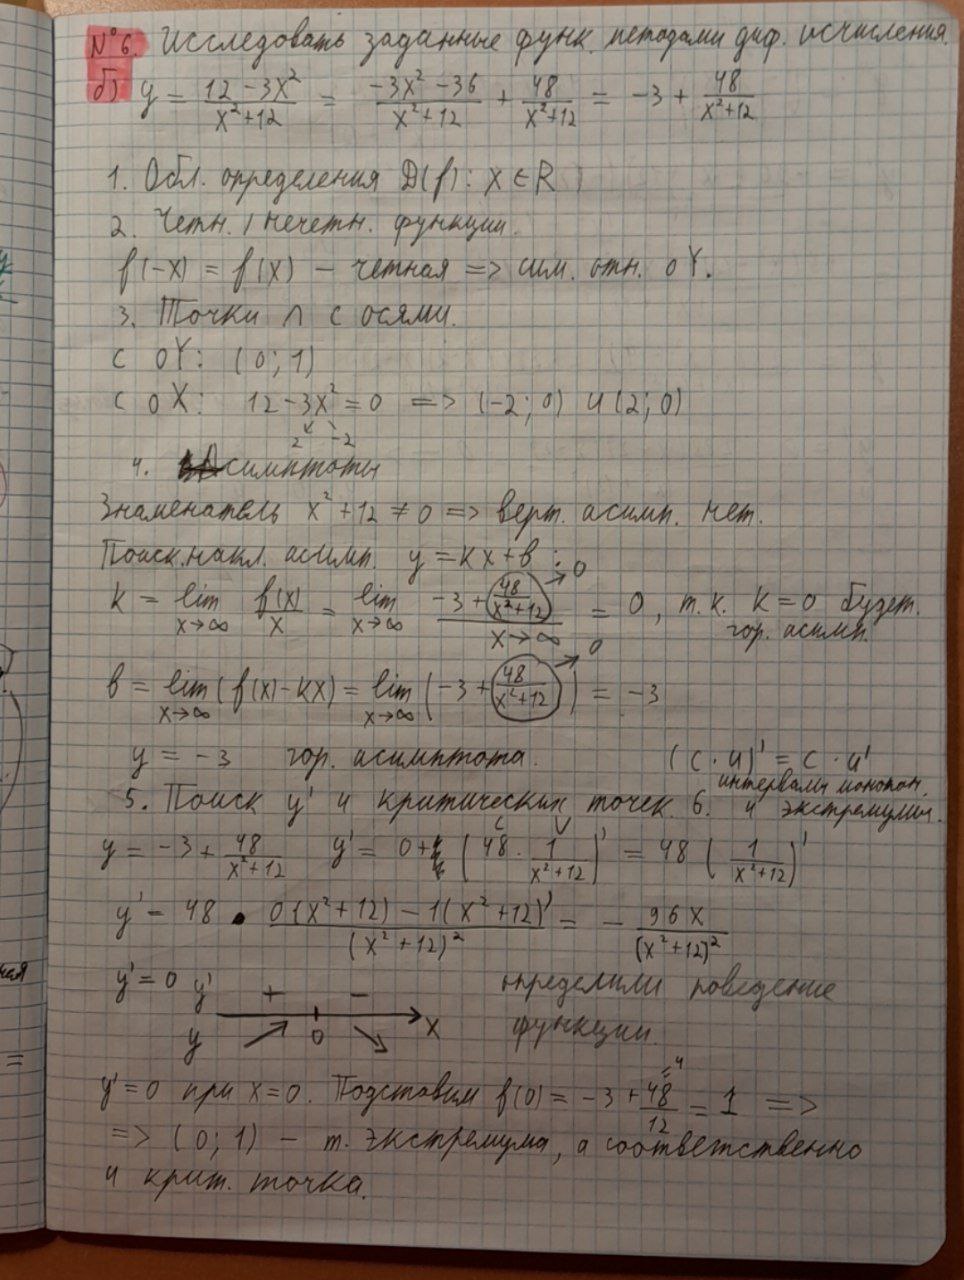 №6. Исследовать заданные функ. методами диф. исчисления.
б) y = (12 - 3x²)/(x² + 12) = (-3x² - 36)/(x² + 12) + 48/(x² + 12) = -3 + 48/(x² + 12)
1. Обл. определения D(f): x ∈ R
2. Четн. / нечетн. функции.
f(-x) = f(x) - четная => сим. отн. oY.
3. Точки ∩ с осями.
с oY: (0; 1)
с oX: 12 - 3x² = 0 => (-2; 0) и (2; 0)
2 -2
4. Асимптоты
Знаменатель x² + 12 ≠ 0 => верт. асимп. нет.
Поиск накл. асимп. y = kx + b :
k = lim x→∞ f(x)/x = lim x→∞ (-3 + 48/(x² + 12) → 0)/(x→∞) = 0, т.к. k = 0 будет
гор. асимп.
b = lim x→∞ (f(x) - kx) = lim x→∞ (-3 + 48/(x² + 12) → 0) = -3
y = -3 гор. асимптота. (c · u)' = c · u'
5. Поиск y' и критических точек. 6. интервалы монотон. и экстремумы.
y = -3 + 48/(x² + 12) y' = 0 + (48 · 1/(x² + 12))' = 48 (1/(x² + 12))'
c v
y' = 48 · (0(x² + 12) - 1(x² + 12)')/(x² + 12)² = - 96x/(x² + 12)²
y' = 0 y' + - определили поведение
y ↗ 0 ↘ x функции.
y' = 0 при x = 0. Подставим f(0) = -3 + 48/12 = 1 =>
=4
=> (0; 1) - т. экстремума, а соответственно
и крит. точка.
=